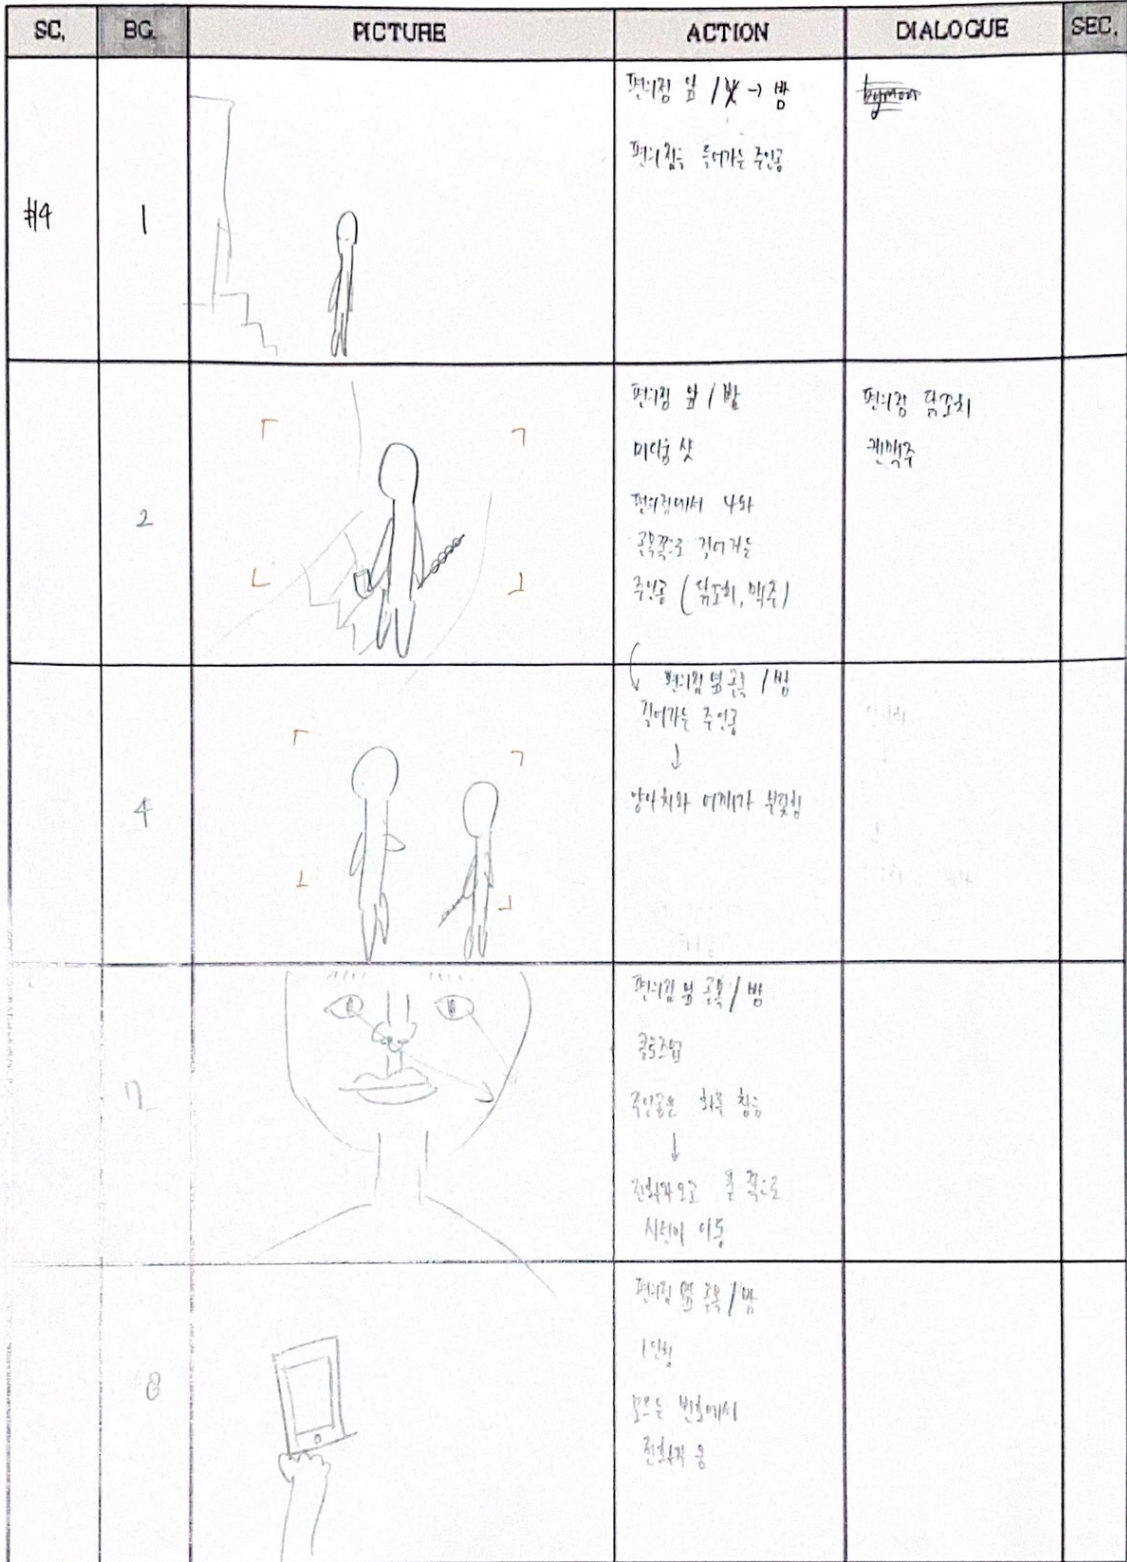 SC. BG. PICTURE ACTION DIALOGUE SEC.
#4
1
편의점 앞 / 낮 → 밤
편의점을 들어가는 주인공
2
편의점 앞 / 밤
미디움 샷
편의점에서 나와
골목쪽으로 걸어가는
주인공 (닭꼬치, 맥주)
편의점 닭꼬치
캔맥주
4
편의점 옆 골목 / 밤
걸어가는 주인공
↓
양아치와 어깨가 부딪힘
7
편의점 옆 골목 / 밤
클로즈업
주인공은
↓
전화가 오고 폰 쪽으로
시선이 이동
8
편의점 옆 골목 / 밤
1인칭
모르는 번호에서
전화가 옴